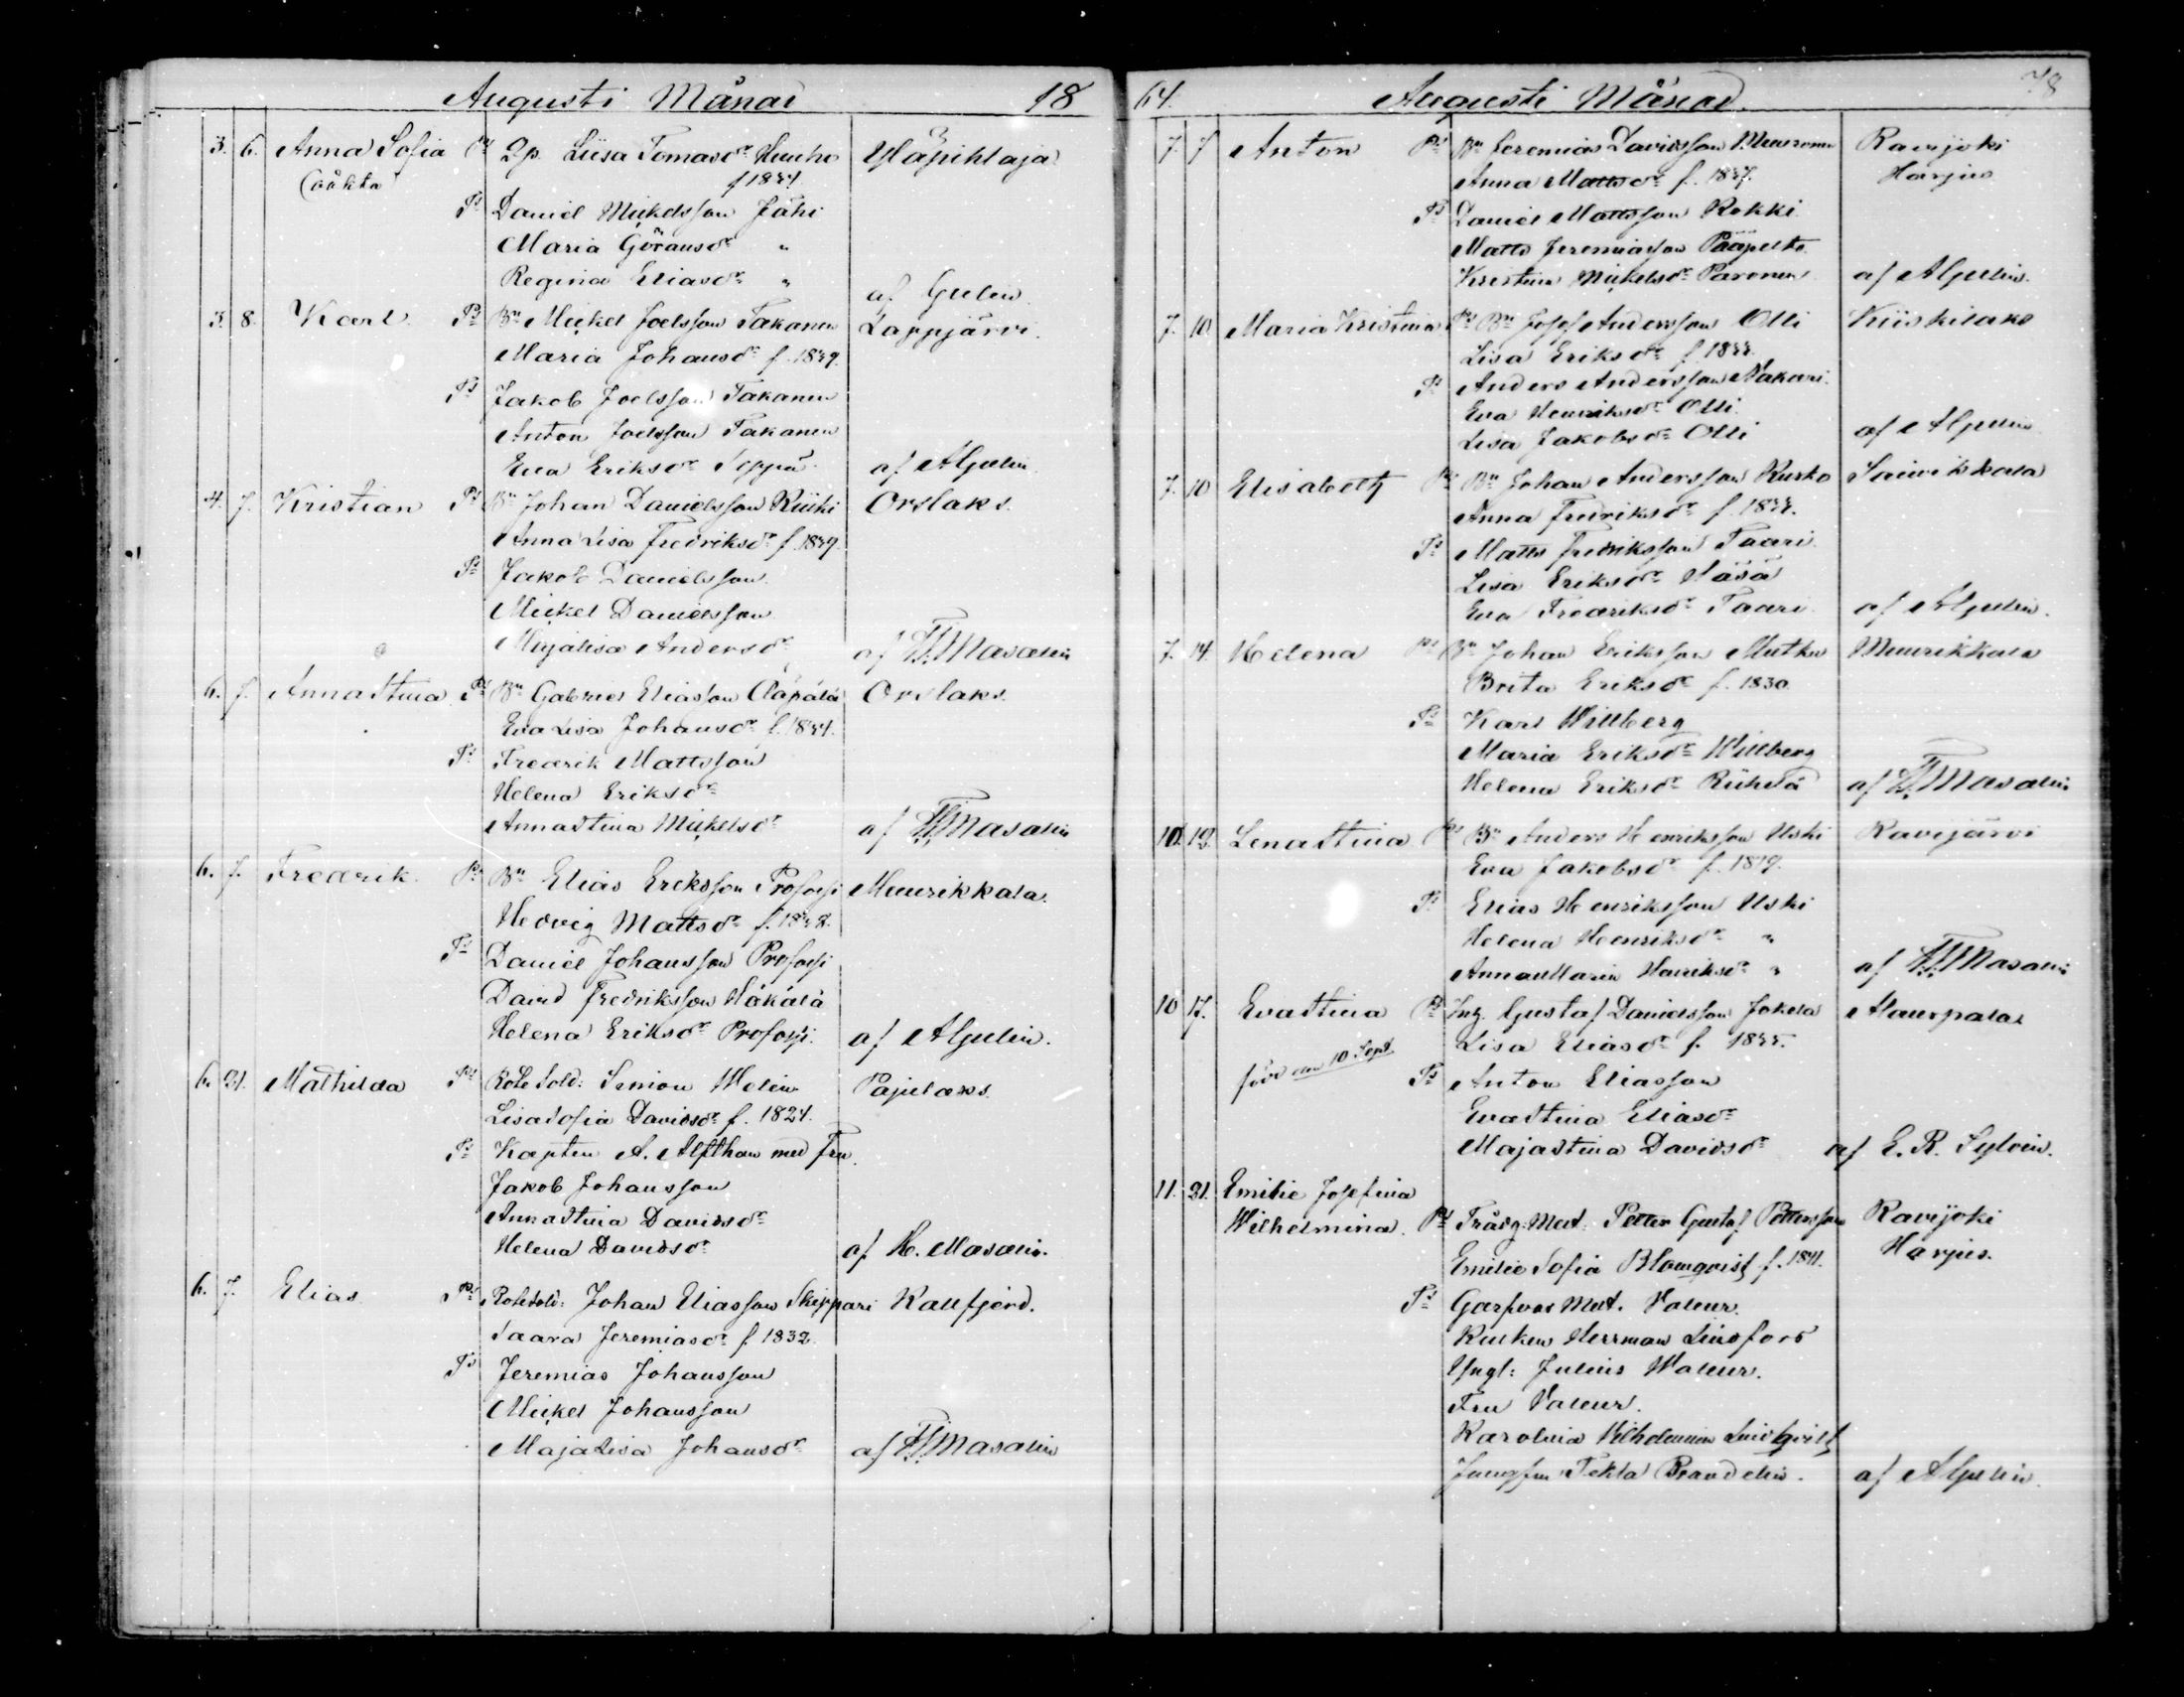 Augusti Månad 18
3. 6. Anna Sofia Ps Qp. Liisa Tomasdr Huuho Yläpihlaja
(oäkta f 1834
Ts Daniel Mickelsson Jähi
Maria Göransdr "
Regina Eliasdr " af Gulin
3. 8. Karl Ps Bn Mickel Joelsson Takanen Lappjärvi
Maria Johansdr f. 1839.
Ts Jakob Joelsson Takanen
Anton Joelsson Takanen
Eva Eriksdr Seppä af AGulin
4. 7. Kristian Ps Bn Johan Danielsson Riihi Orslaks.
Anna Lisa Fredriksdr f. 1839.
Ts Jakob Danielsson
Mickel Danielsson
Majalisa Andersdr af Masalin
6. 7. AnnaStina Ps Bn Gabriel Eliasson Orslaks.
Eva Lisa Johansdr f. 1834.
Ts Fredrik Mattsson
Helena Eriksdr
AnnaStina Mickelsdr af Masalin
6. 7. Fredrik Ps Bn Elias Eriksson Profossi Muurikkala.
Hedvig Mattsdr
Ts Daniel Johansson Profossi
David Fredriksson Häkälä
Helena Eriksdr Profossi. af AGulin.
6. 21. Mathilda Ps Rote Sold: Simon Welin Pajulaks.
LisaSofia Davidsdr f. 1824.
Ts Kapten A. Alfthan med Fru.
Jakob Johansson
AnnaStina Davidsdr
Helena Davidsdr af H. Masalin.
6. 7. Elias Ps RoteSold: Johan Eliasson Skeppari Kallfjerd.
Saara Jeremiasdr f. 1832
Ts Jeremias Johansson
Mickel Johansson
MajaLisa Johansdr af Masalin
64. Augusti Månad. 78
7. 7 Anton Ps Bn Jeremias Davidsson Muuronen Ravijoki
Anna Mattsdr f. 1837. Harjus
Ts Daniel Mattsson Rokki
Matts Jeremiasson Pääpelto
Kristina Mickelsdr Paronen af AGulin.
7. 10. Maria Kristina Ps Bn Josef Andersson Olli Kiiskilaks
Lisa Eriksdr f. 1833.
Ts Anders Andersson Nakari.
Eva Henriksdr Olli
Lisa Jakobsdr Olli af AGulin
7. 10 Elisabeth Ps Bn Johan Andersson Kurko Saivikkala
Anna Fredriksdr f. 1833.
Ts Matts Fredriksson Taari
Lisa Eriksdr Näsä
Eva Fredriksdr Taari af AGulin.
7. 14. Helena Ps Bn Johan Eriksson Mutka Muurikkala
Brita Eriksdr f. 1830.
Ts Karl Willberg
Maria Eriksdr Willberg
Helena Eriksdr Riihelä af Masalin
10. 12. LenaStina Ps Bn Anders Henriksson Uski Ravijärvi
Eva Jakobsdr f. 1819.
Ts Elias Henriksson Uski
Helena Henriksdr "
AnnaMaria Henriksdr " af Masalin
10 17. EvaStina Ps Ing. Gustaf Danielsson Jokela Alaurpala
Lisa Eliasdr f. 1835.
förd den 10 Sept. Ts Anton Eliasson
EvaStina Eliasdr
MajaStina Davidsdr af E. R. Sylvin.
11. 21. Emilie Josefina
Wilhelmina. Ps Trädg: Mäst. Petter Gustaf Pettersson Ravijoki
Emilie Sofia Blomqvist f. 1841. Harjus.
Ts Garfvar Mäst. Valeur.
Kusken Herrman Lindfors
Yngl: Julius Waleur.
Fru Valeur.
Karolina Wilhelmina Lindqvist
Jungfru Tekla Brandelin. af AGulin.